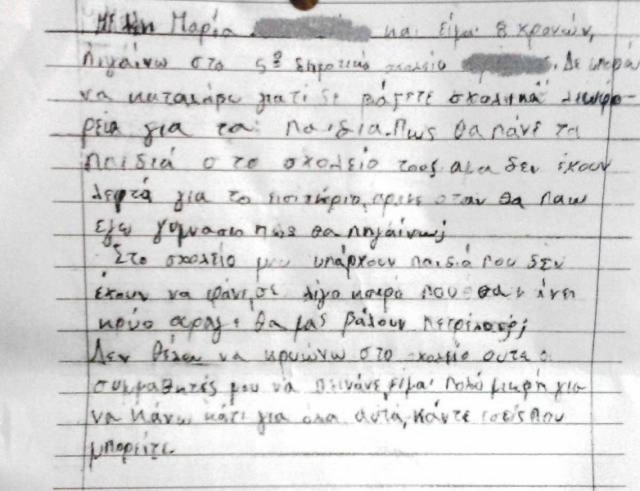 Μαρία και είμαι 8 χρονών,
πιγαίνω στο 5ο δημοτικό σχολείο . Δε μπορώ
να καταλάβω γιατί δε βάζετε σχολικά λεωφο-
ρεία για τα παιδιά. Πως θα πάνε τα
παιδιά στο σχολείο τους αμα δεν έχουν
λεφτά για το εισιτήριο, οταν θα παω
εγω γυμνασιο πως θα πηγαίνω;
Στο σχολείο μου υπάρχουν παιδιά που δεν
έχουν να φάνε, σε λίγο καιρό που θα κάνει
κρύο αραγε θα μας βάλουν πετρέλαιο;
Δεν θέλω να κρυώνω στο σχολείο ουτε οι
συμμαθητές μου να πεινάνε, είμαι πολύ μικρή για
να κάνω κάτι για ολα αυτά, κάντε εσείς που
μπορείτε.